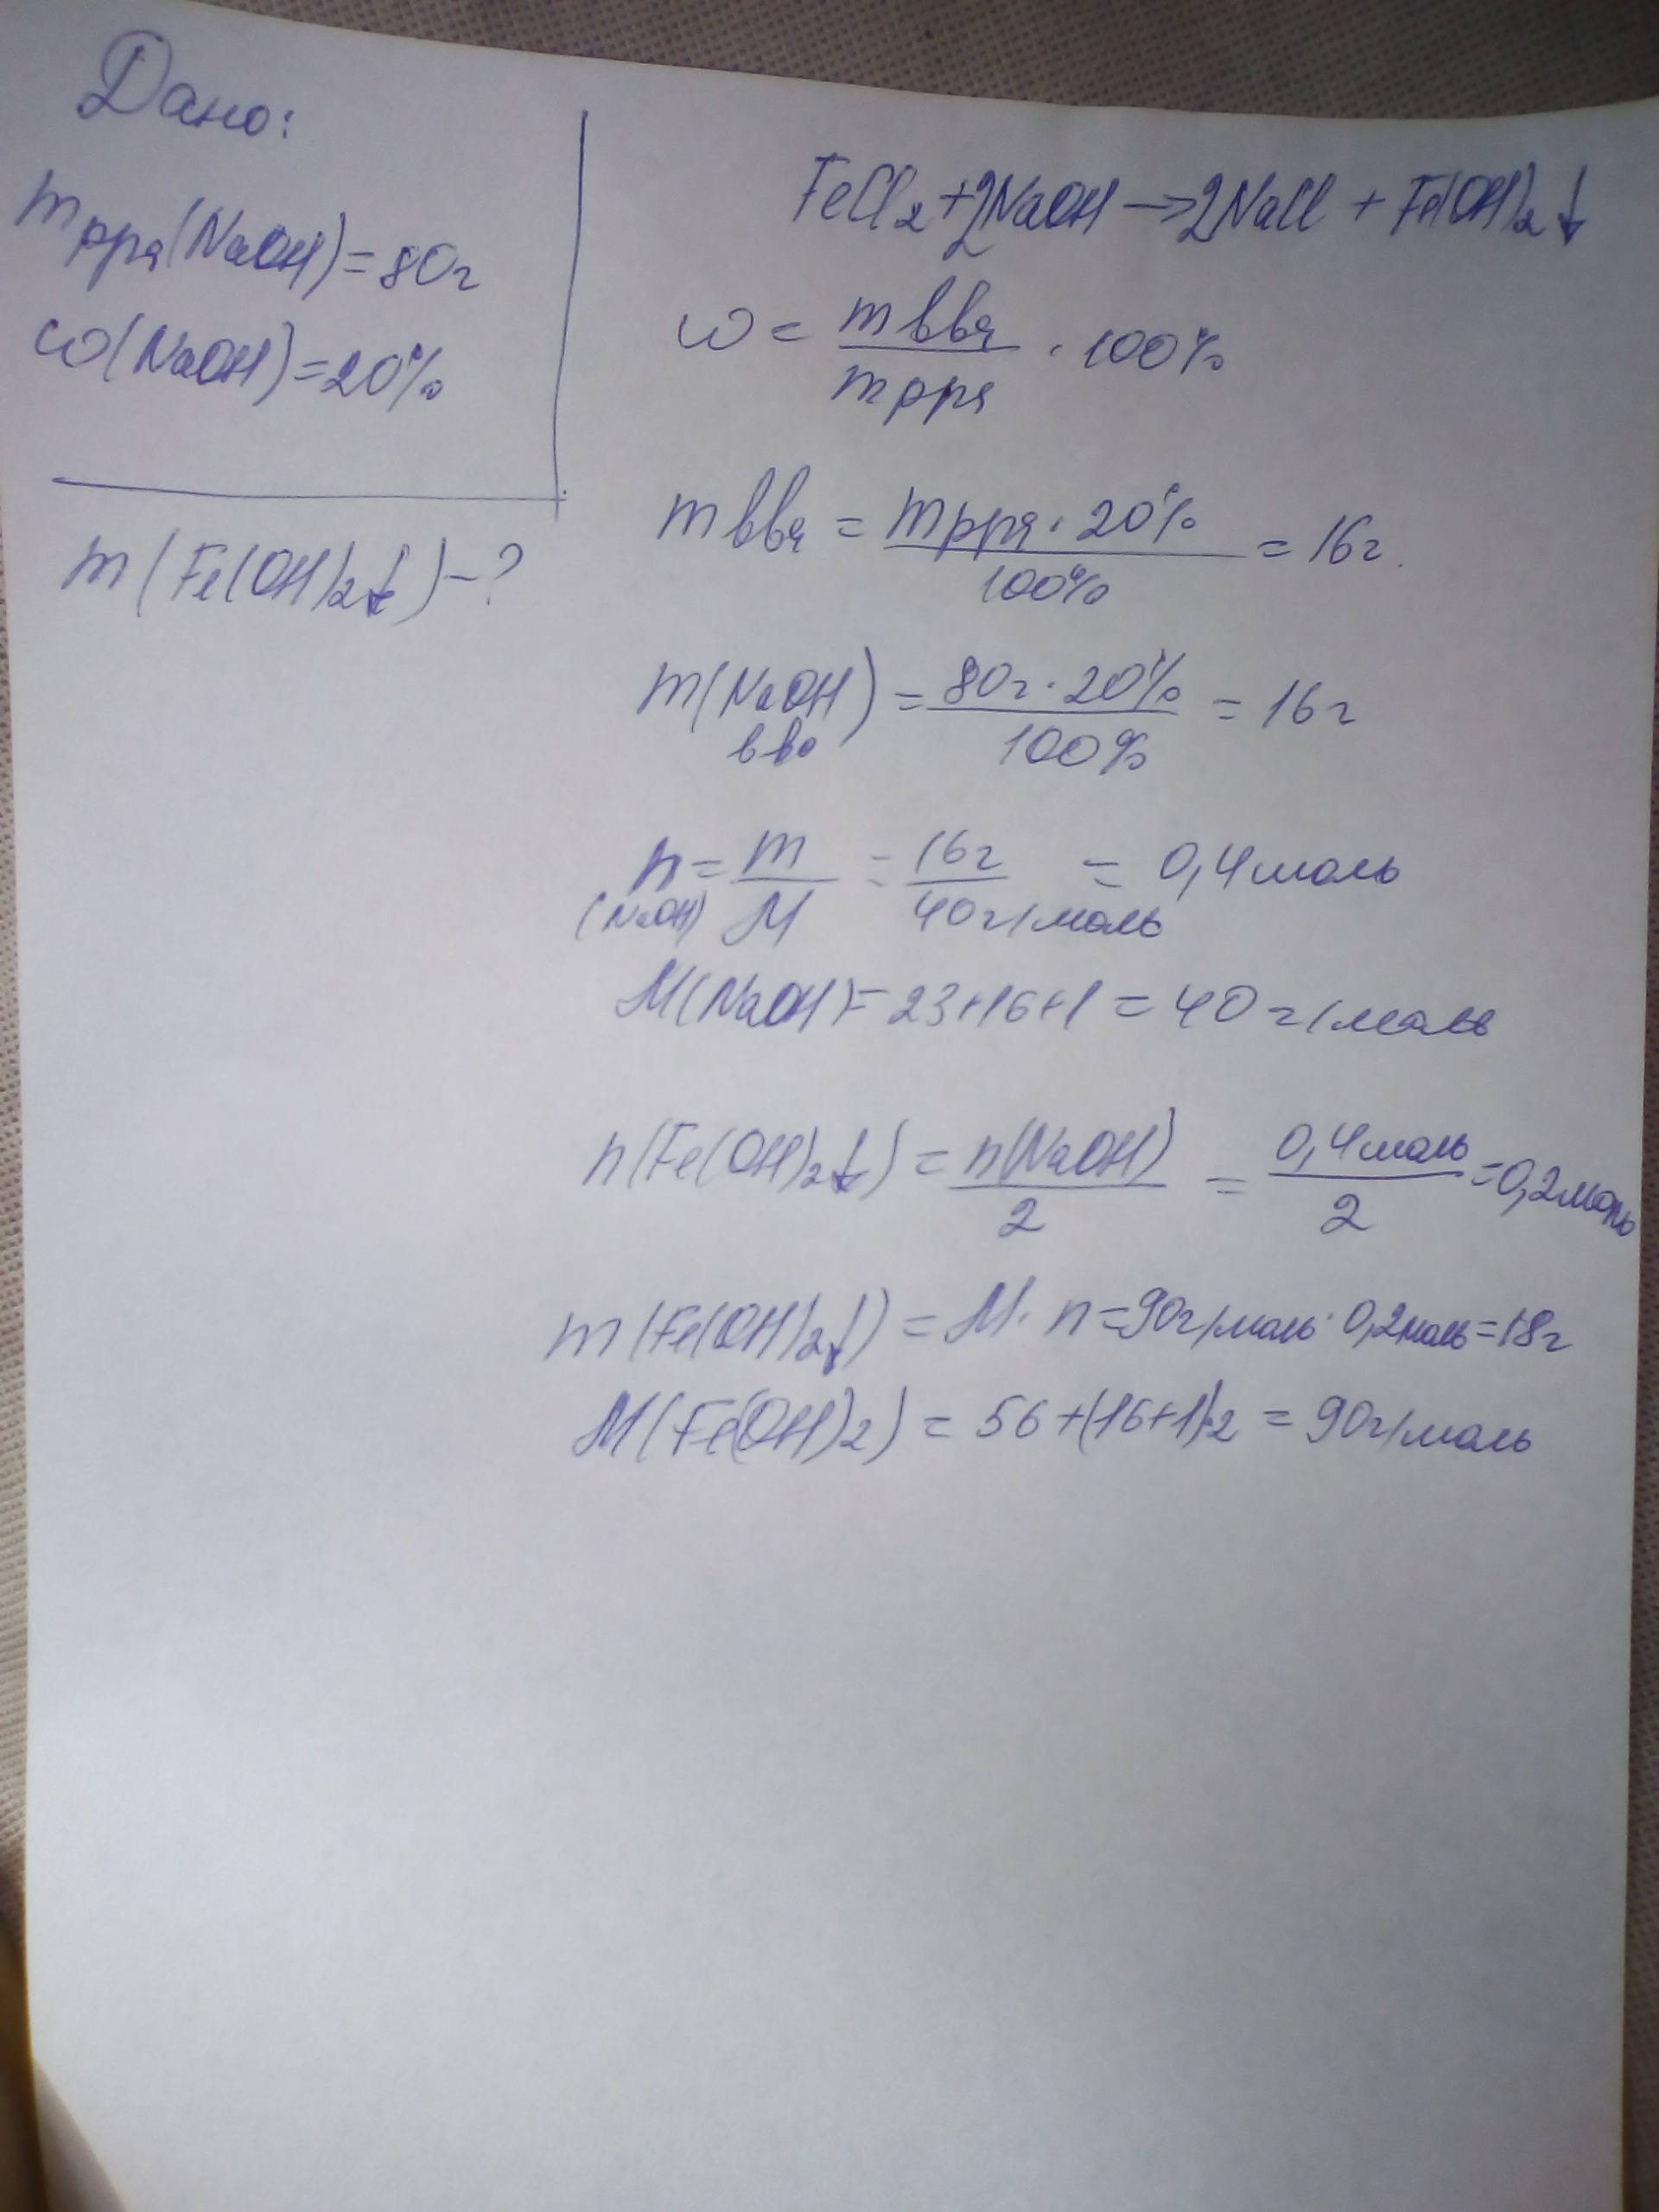 Дано:
mрря(NaOH)=80г
ω(NaOH)=20%
m(Fe(OH)2↓)-?
FeCl2+2NaOH→2NaCl+Fe(OH)2↓
ω = mвва/mрря · 100%
mвва = mрря · 20%/100% = 16г.
m(NaOH) вво = 80г · 20%/100% = 16г
n(NaOH) = m/M = 16г/40г/моль = 0,4моль
M(NaOH)=23+16+1=40г/моль
n(Fe(OH)2↓) = n(NaOH)/2 = 0,4моль/2 =0,2моль
m(Fe(OH)2↓) = M · n =90г/моль · 0,2моль=18г
M(Fe(OH)2) = 56+(16+1)·2 = 90г/моль